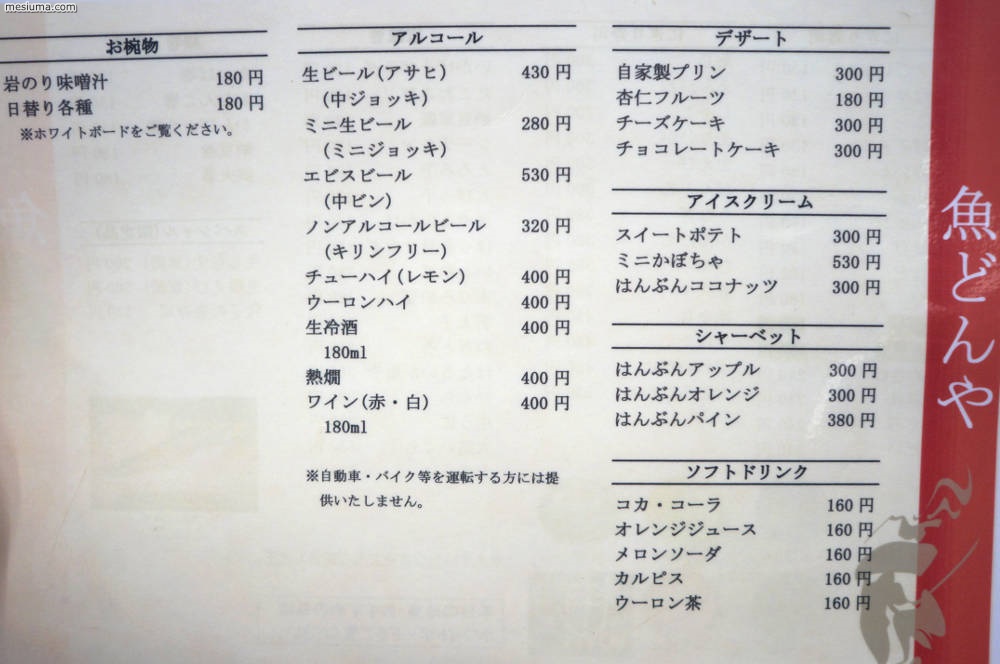 mesiuma.com
お椀物
岩のり味噌汁 180円
日替り各種 180円
※ホワイトボードをご覧ください。
アルコール
生ビール(アサヒ) 430円
(中ジョッキ)
ミニ生ビール 280円
(ミニジョッキ)
エビスビール 530円
(中ビン)
ノンアルコールビール 320円
(キリンフリー)
チューハイ(レモン) 400円
ウーロンハイ 400円
生冷酒 400円
180ml
熱燗 400円
ワイン(赤・白) 400円
180ml
※自動車・バイク等を運転する方には提
供いたしません。
デザート
自家製プリン 300円
杏仁フルーツ 180円
チーズケーキ 300円
チョコレートケーキ 300円
アイスクリーム
スイートポテト 300円
ミニかぼちゃ 530円
はんぶんココナッツ 300円
シャーベット
はんぶんアップル 300円
はんぶんオレンジ 300円
はんぶんパイン 380円
ソフトドリンク
コカ・コーラ 160円
オレンジジュース 160円
メロンソーダ 160円
カルピス 160円
ウーロン茶 160円
魚どんや